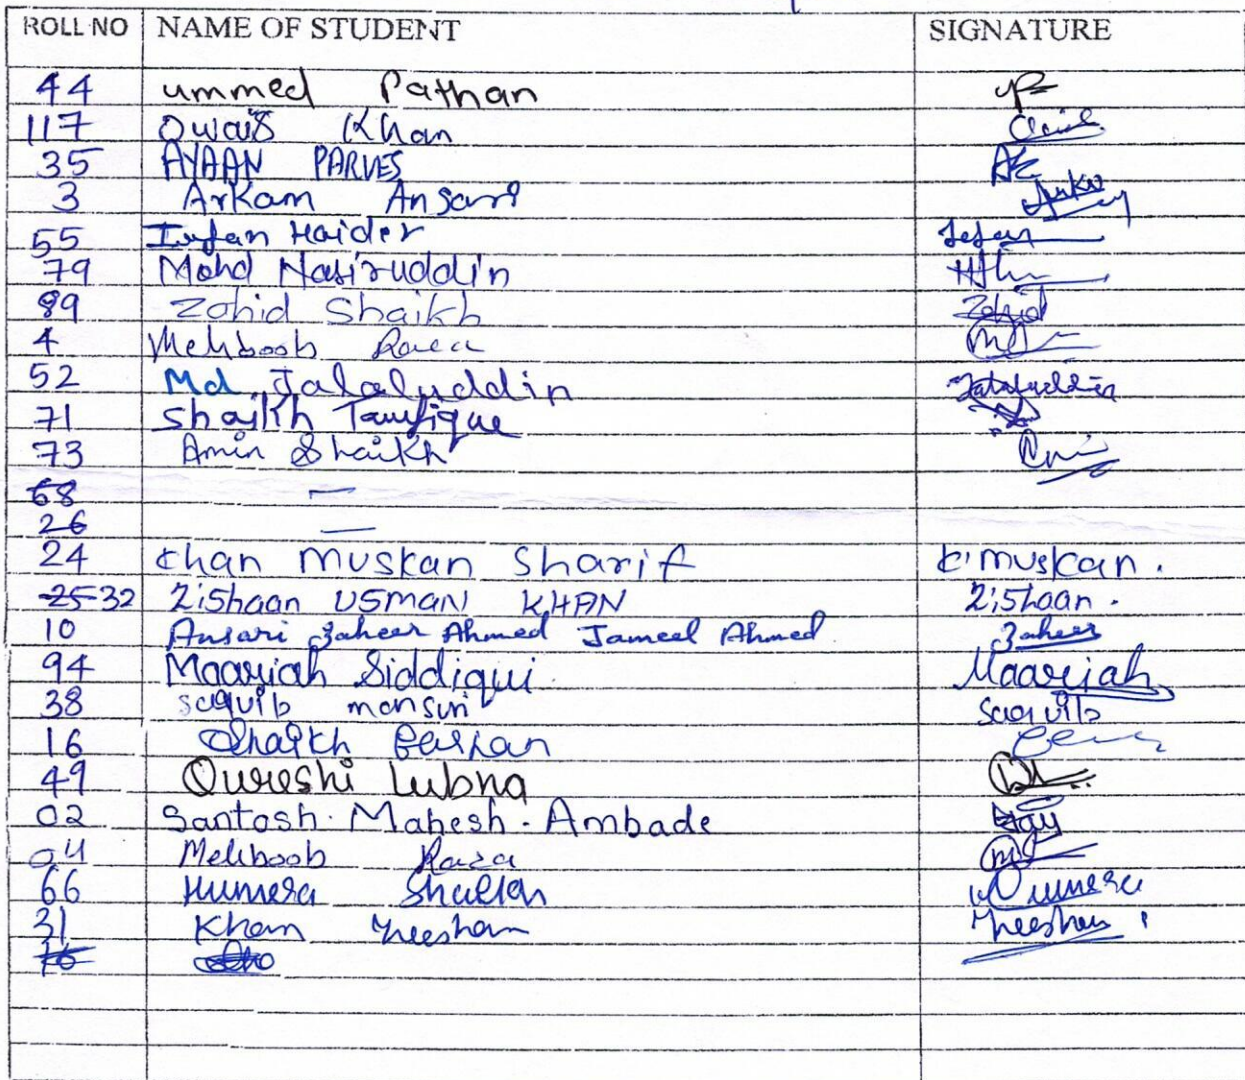 ROLL NO NAME OF STUDENT SIGNATURE
44 ummed Pathan
117 Owais Khan
35 AYAAN PARVES
3 Arkam Ansari
55 Irfan Haider
79 Mohd Nasiruddin
89 Zahid Shaikh Zahid
4 Mehboob Raza
52 Md. Jalaluddin Jalaluddin
71 Shaikh Taufique
73 Amin Shaikh
68 —
26 —
24 khan muskan Sharif k. muskan.
25 32 Zishaan USMANI KHAN Zishaan.
10 Ansari Zaheer Ahmed Jameel Ahmed Zaheer
94 Maariah Siddiqui Maariah
38 saquib mansuri saquib
16 Shaikh
49 Qureshi Lubna
02 Santosh. Mahesh. Ambade
04 Mehboob Raza
66 Humera Humera
31 Khan Zeeshan Zeeshan
16